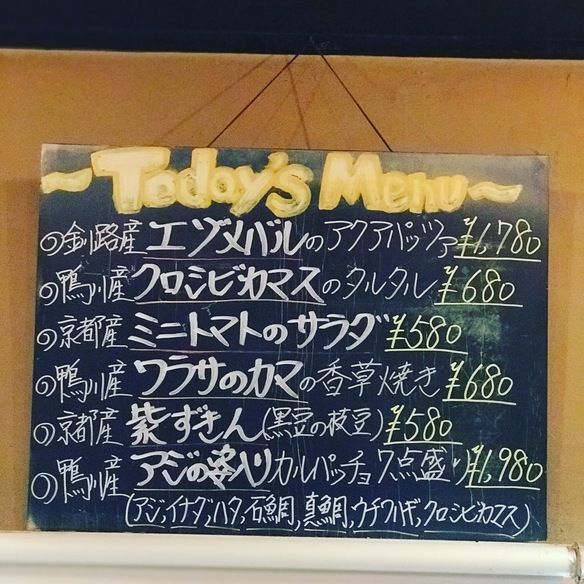 ~Today's Menu~
○釧路産エゾメバルのアクアパッツァ¥1,780
○鴨川産クロシビカマスのタルタル¥680
○京都産ミニトマトのサラダ¥580
○鴨川産ワラサのカマの香草焼き¥680
○京都産紫ずきん(黒豆の枝豆)¥580
○鴨川産アジの入りカルパッチョ7点盛り¥1,980
(アジ,イナダ,ハタ,石鯛,真鯛,ウチワハギ,クロシビカマス)